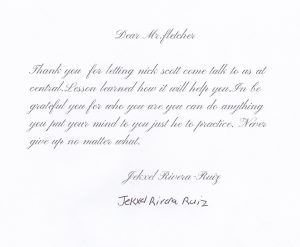 Dear Mr.fletcher
Thank you for letting nick scott come talk to us at
central.Lesson learned how it will help you.In be
grateful you for who you are you can do anything
you put your mind to you just he to practice. Never
give up no matter what.
Jekxel Rivera-Ruiz
Jekxel Rivera Ruiz